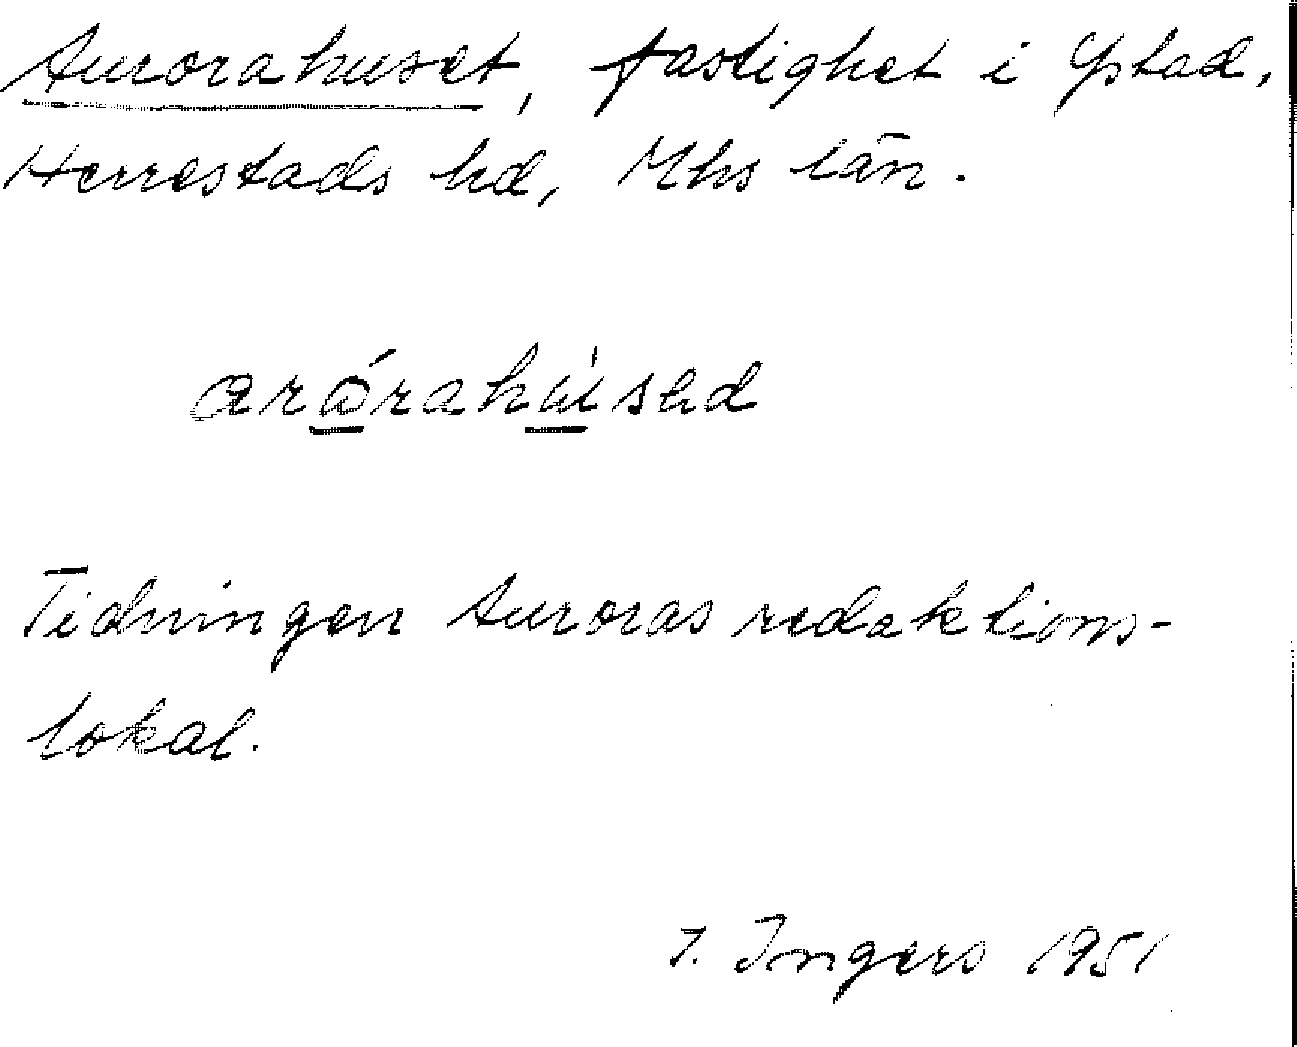 Aurorahuset, fastighet i Ystad,
Herrestads hd, Mhs län.
arórahúsed
Tidningen Auroras redaktions-
lokal.
I. Ingers 1951